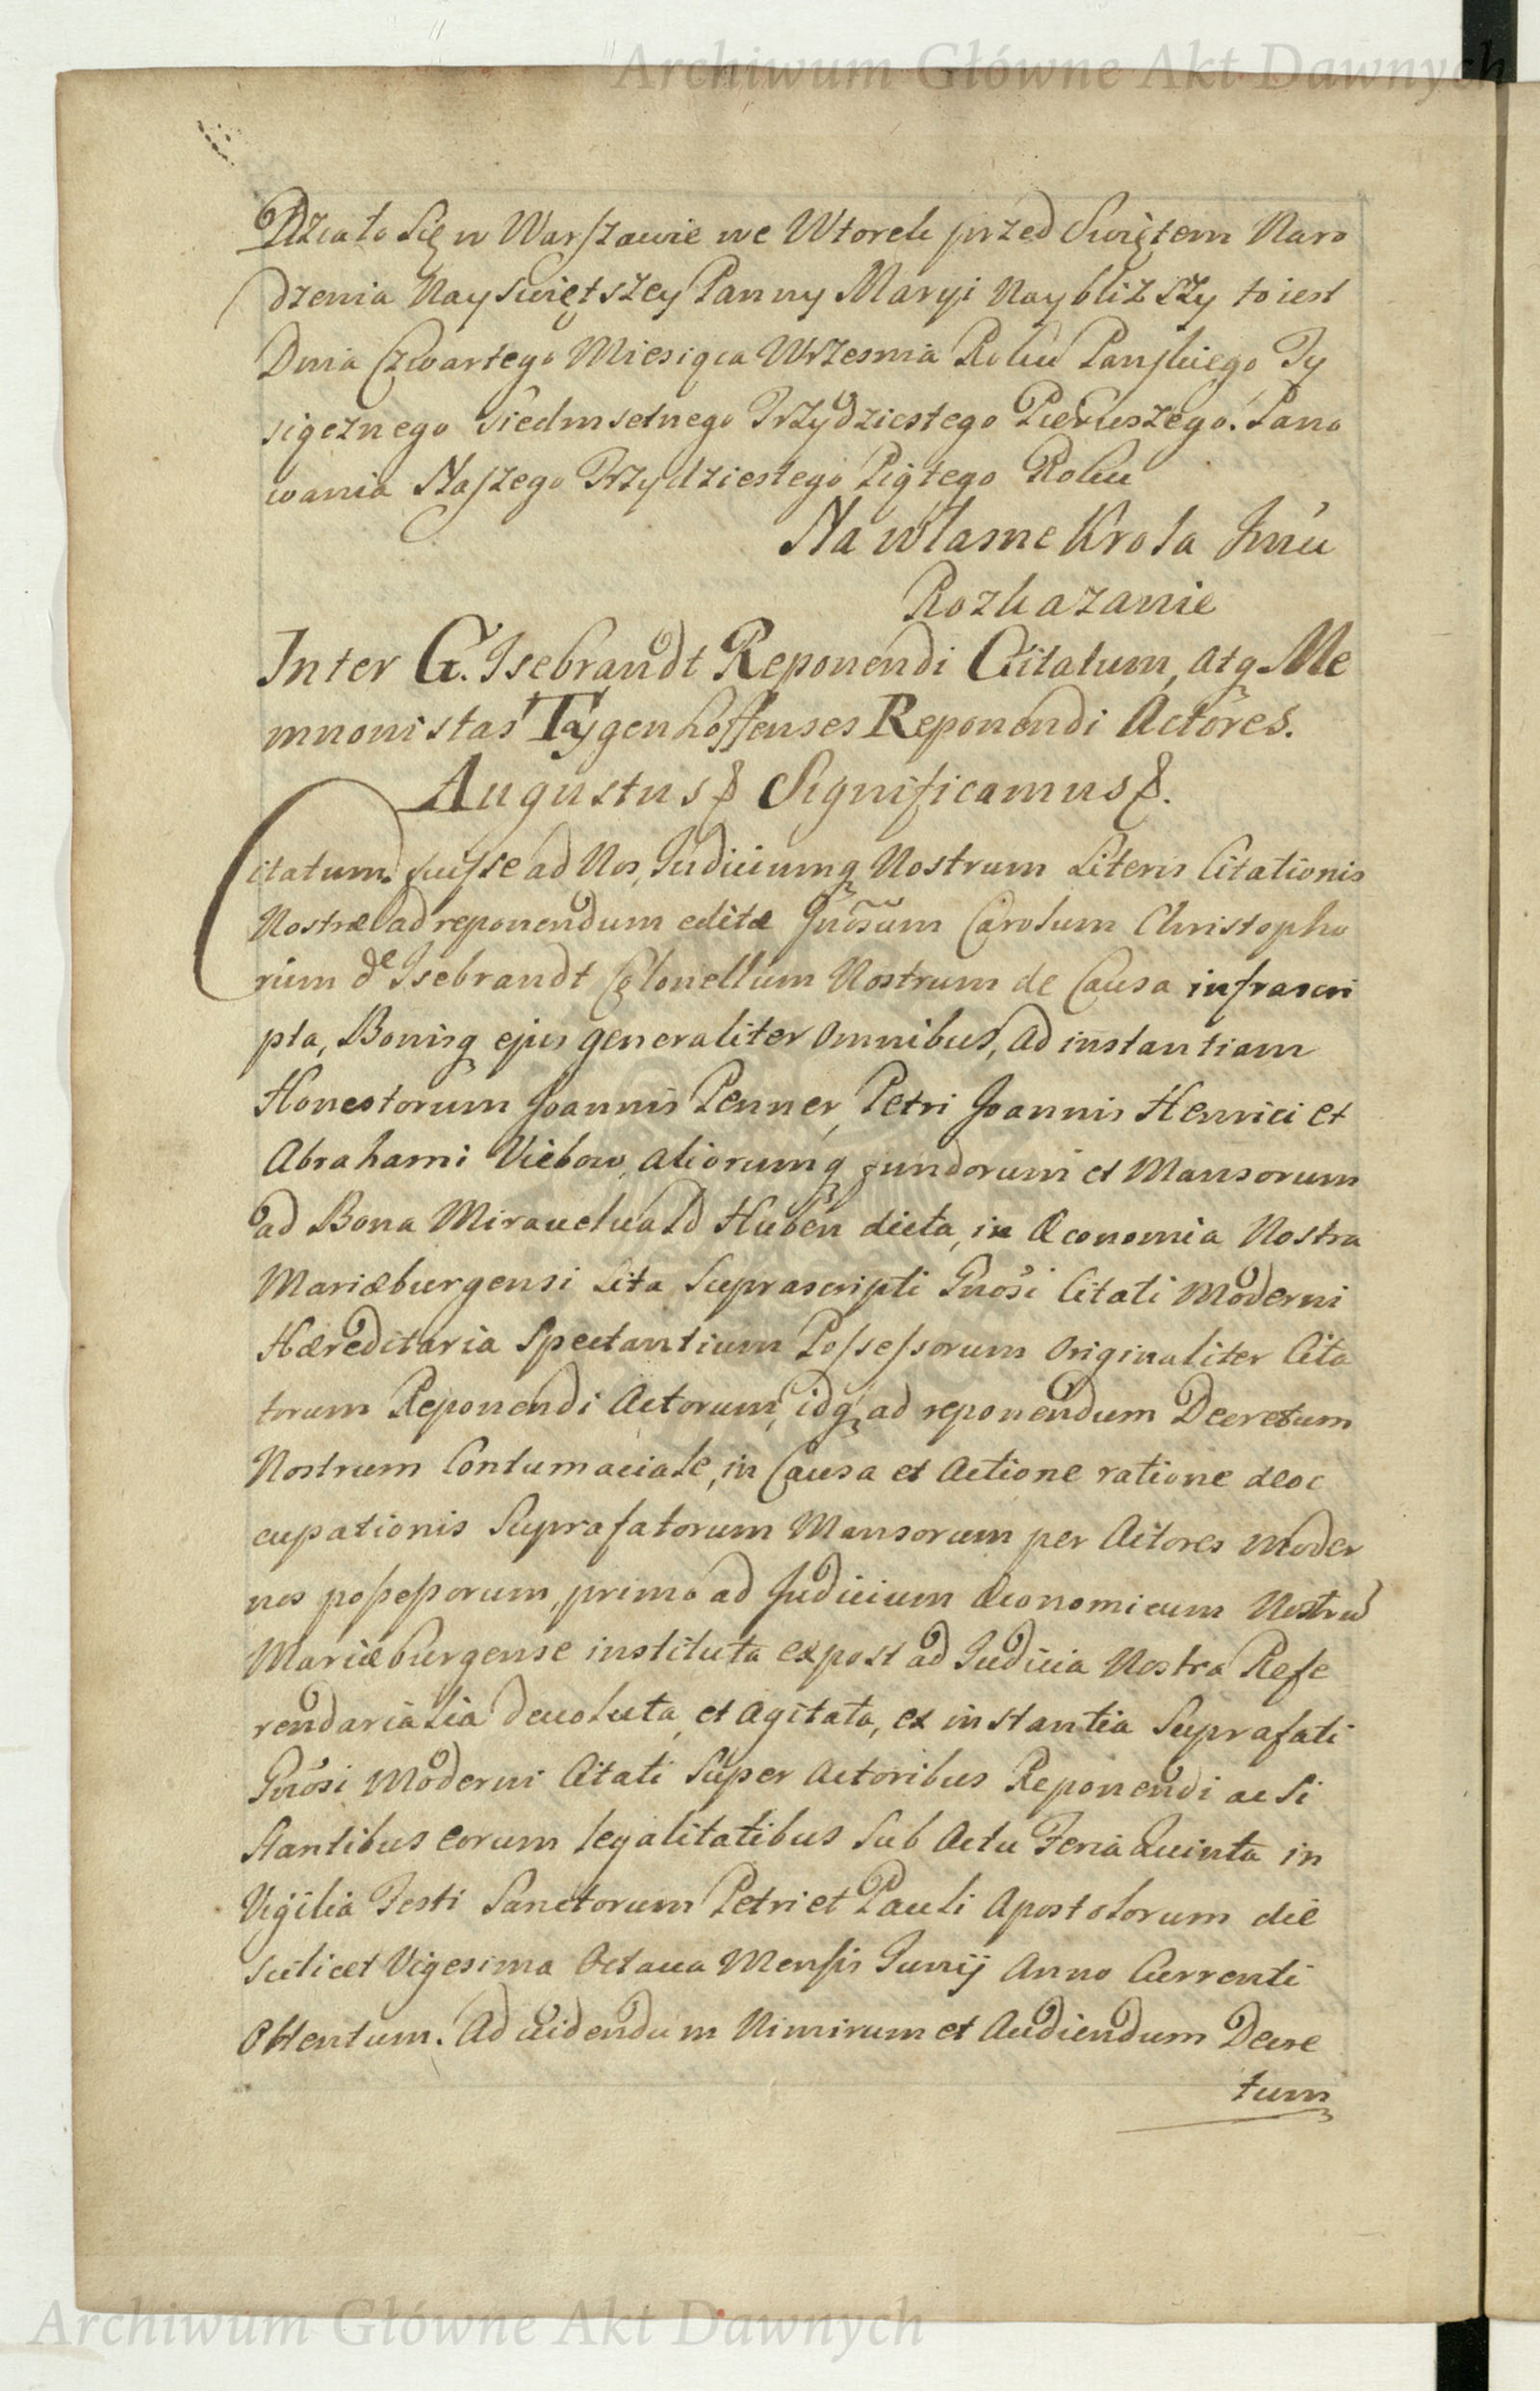 Archiwum Główne Akt Dawnych
Działo Się w Warszawie we Wtorek przed Swiętem Naro
dzenia Nayswiętszey Panny Maryi Naybliższy to iest
Dnia Czwartego Miesiąca Wrzesnia Roku Panskiego Ty
siącznego siedmsetnego Trzydziestego Pierwszego. Pano
wania Naszego Trzydziestego Piątego Roku
Na własne Krola Jmći
Rozkazanie
Inter G. Isebrandt Reponendi Citatum, atq Me
mnonistas Tygenhoffenses Reponendi Actores.
Augustus & Significamus &.
Citatum fuisse ad Nos, Iudiciumq Nostrum Literis Citationis
Nostræ ad reponendum editæ Gnosum Carolum Christopho
rum de Isebrandt Colonellum Nostrum de Causa infrascri
pta, Bonisq ejus generaliter omnibus, ad instantiam
Honestorum Joannis Penner, Petri Joannis Henrici et
Abrahami Viebow, aliorumq fundorum et Mansorum
ad Bona Mirauelwald Huben dicta, in Œconomia Nostra
Mariæburgensi Sita Suprascripti Gnosi Citati Moderni
Hæreditaria Spectantium Possessorum Originaliter Cita
torum Reponendi Actorum, idq ad reponendum Decretum
Nostrum Contumaciale, in Causa et Actione ratione deoc
cupationis Suprafatorum Mansorum per Actores Moder
nos possessorum, primo ad Judicium Œconomicum Nostrū
Mariæburgense instituta expost ad Iudicia Nostra Refe
rendarialia deuoluta, et agitata, ex instantia Suprafati
Gnosi Moderni Citati Super Actoribus Reponendi ac Si
stantibus eorum legalitatibus Sub Actu Feria Quinta in
Vigilia Festi Sanctorum Petri et Pauli Apostolorum die
Scilicet Vigesima Octaua Mensis Junij Anno Currenti
Obtentum. Ad uidendum Nimirum et Audiendum Decre
tum
Archiwum Główne Akt Dawnych